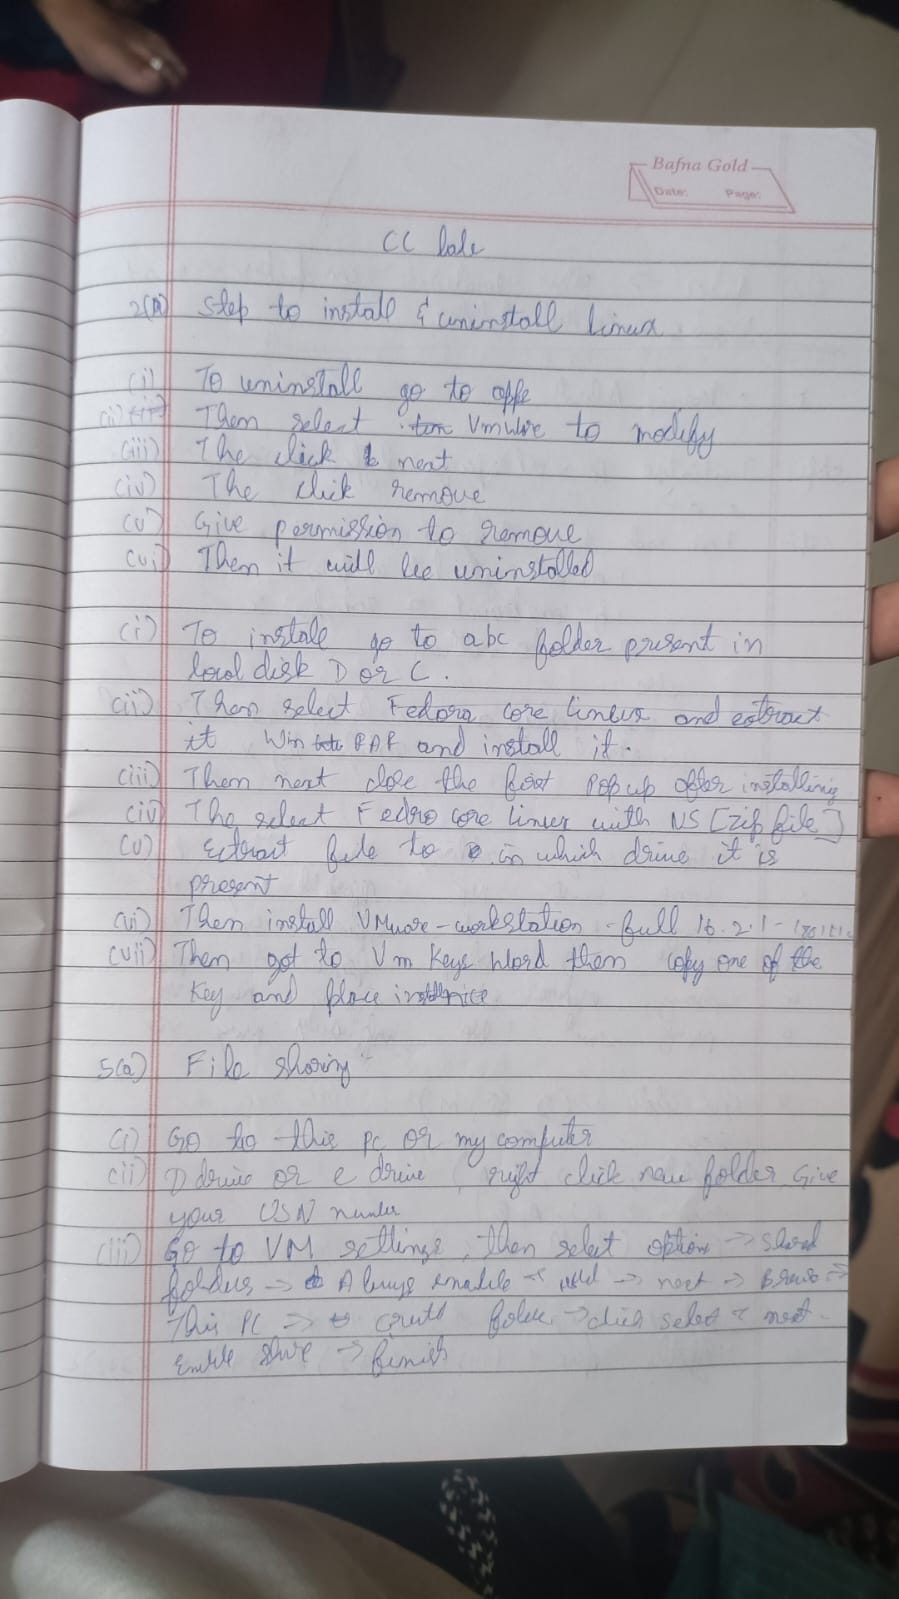 Bafna Gold
Date: Page:
CC lab
2(A) Step to install & uninstall Linux
(i) To uninstall go to
(ii) Then select Vmware to modify
(iii) The click next
(iv) The click remove
(v) Give permission to remove
(vi) Then it will be uninstalled
(i) To install go to abc folder present in
local disk D or C.
(ii) Then select Fedora core linux and extract
it Win RAR and install it.
(iii) Then next close the first Pop up after installing
(iv) The select Fedro core linux with NS [zip file]
(v) Extract file to in which drive it is
present
(vi) Then install VMware-workstation-full 16.2.1-
(vii) Then got to Vm Keys Word then copy one of the
Key and place
5(a) File sharing
(i) Go to this pc or my computer
(ii) D drive or e drive, right click new folder Give
your USN number
(iii) Go to VM settings, then select option → shared
folders → Always enable → next → Brows →
This PC → folder → click select & next.
Enable share → finish